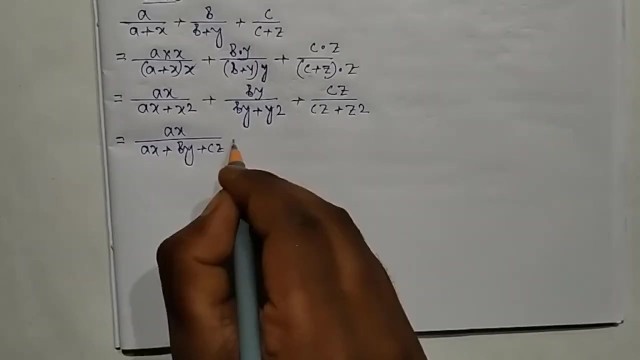 a/a+x + b/b+y + c/c+z
= a×x/(a+x)x + b·y/(b+y)y + c·z/(c+z)·z
= ax/ax+x2 + by/by+y2 + cz/cz+z2
= ax/ax+by+cz